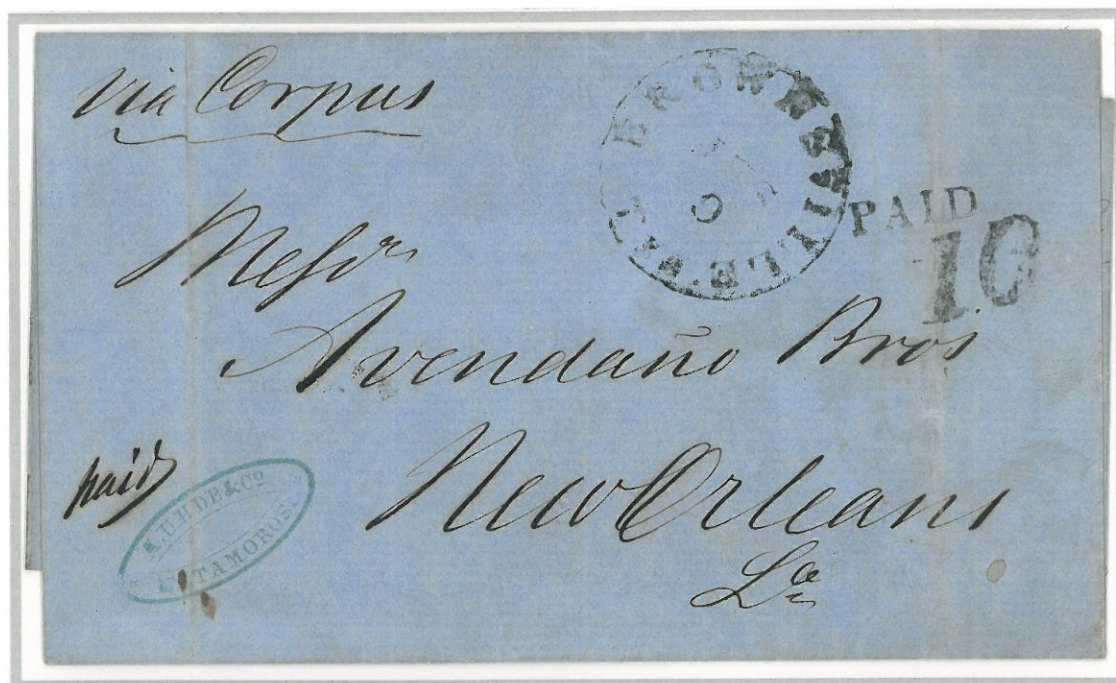 via Corpus
BROWNSVILLE.
PAID
10
Messrs
Avendaño Bros
New Orleans
La
paid
A. UHDE & CO.
MATAMOROS.